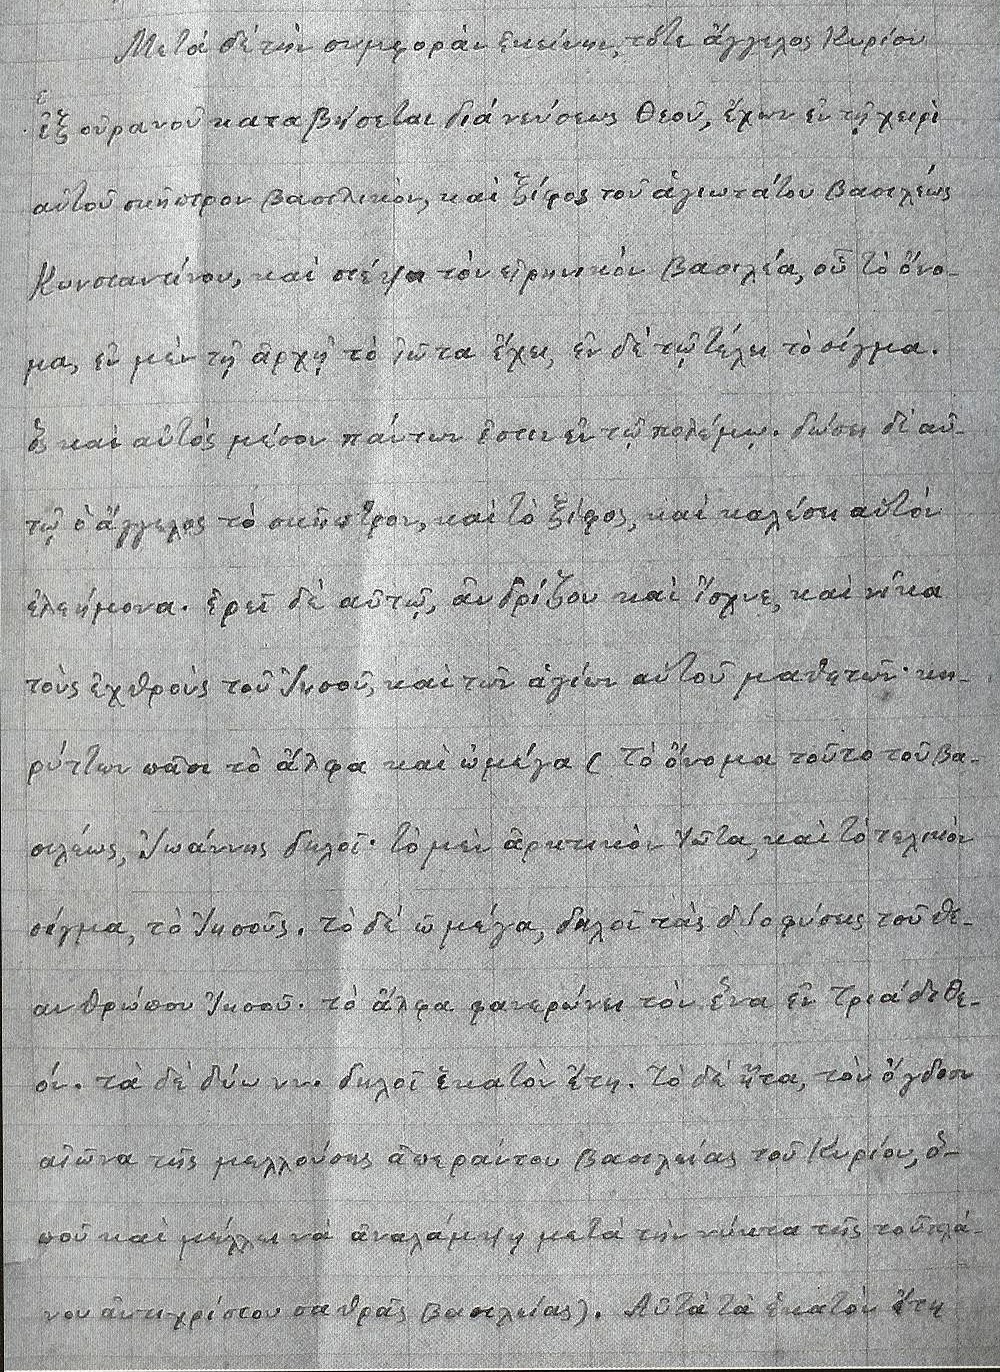 Μετά δέ τήν συμφοράν ἐκείνην, τότε ἄγγελος Κυρίου
ἐξ οὐρανοῦ καταβήσεται διά νεύσεως Θεοῦ, ἔχων ἐν τῇ χειρί
αὐτοῦ σκῆπτρον βασιλικόν, καί ξίφος τοῦ ἁγιωτάτου βασιλέως
Κωνσταντίνου, καί στέψει τόν εἰρηνικόν βασιλέα, οὗ τό ὄνο-
μα, ἐν μέν τῇ ἀρχῇ τό ἰῶτα ἔχει, ἐν δέ τῷ τέλει τό σίγμα.
ὅς καί αὐτός μέσον πάντων ἐστιν ἐν τῷ πολέμῳ. δώσει δέ αὐ-
τῷ ὁ ἄγγελος τό σκῆπτρον, καί τό ξίφος, καί καλέσει αὐτόν
ἐλεήμονα. ἐρεῖ δέ αὐτῷ, ἀνδρίζου καί ἴσχυε, καί νίκα
τούς ἐχθρούς τοῦ Ἰησοῦ, καί τῶν ἁγίων αὐτοῦ μαθητῶν· κη-
ρύττων πᾶσι τό ἄλφα καί ὠμέγα ( τό ὄνομα τοῦτο τοῦ βα-
σιλέως, Ἰωάννης δηλοῖ· τό μέν ἀρκτικόν ἰῶτα, καί τό τελικόν
σίγμα, τό Ἰησοῦς. τό δέ ὦ μέγα, δηλοῖ τάς δύο φύσεις τοῦ θε-
ανθρώπου Ἰησοῦ. τό ἄλφα φανερώνει τόν ἕνα ἐν Τριάδι θε-
όν. τά δέ δύω νν. δηλοῖ ἑκατόν ἔτη. τό δέ ἦτα, τόν ὄγδοον
αἰῶνα τῆς μελλούσης ἀπεράντου βασιλείας τοῦ Κυρίου, ὁ-
ποῦ καί μέλλει νά ἀναλάμψῃ μετά τήν νύκτα τῆς τοῦ πλά-
νου ἀντιχρίστου σαθρᾶς βασιλείας). Αὐτά τά ἑκατόν ἔτη